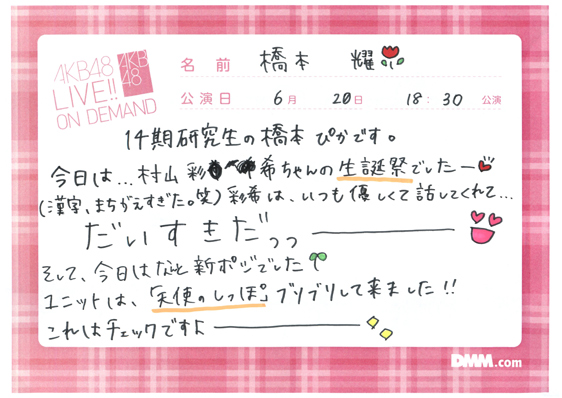 AKB48
LIVE!!
ON DEMAND
AKB
48
名前 橋本 耀
公演日 6月 20日 18:30 公演
14期研究生の橋本 ひかです。
今日は…村山 彩希ちゃんの生誕祭でしたー
(漢字、まちがえすぎた。笑) 彩希は、いつも優しくて話してくれて…
だいすきだっっ―――
そして、今日はなんと新ポジでした
ユニットは、「天使のしっぽ」ブリブリして来ました!!
これはチェックですよ―――
DMM.com